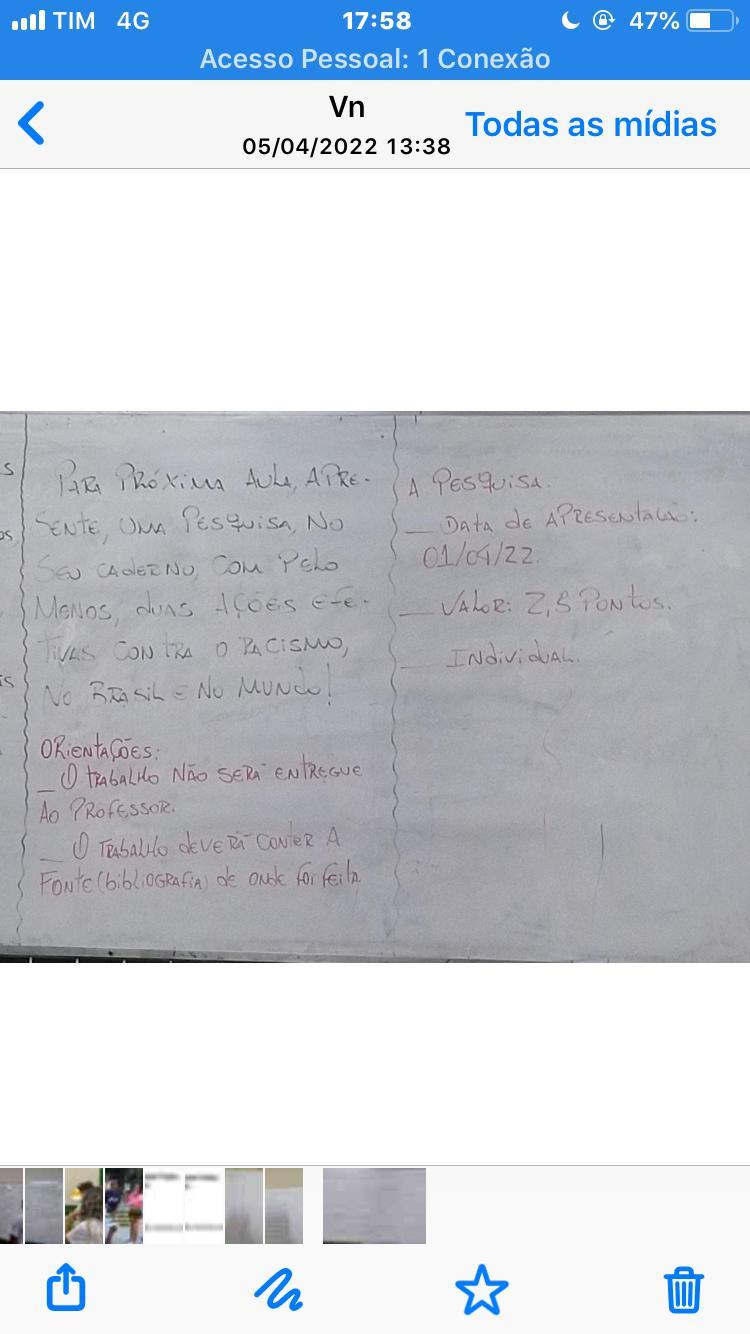 TIM 4G 17:58 47%
Acesso Pessoal: 1 Conexão
Vn
05/04/2022 13:38
Todas as mídias
PARA PRÓXIMA AULA, APRE-
SENTE, UMA PESQUISA, NO
SEU CADERNO, COM PELO
MENOS, DUAS AÇÕES EFE-
TIVAS CONTRA O RACISMO,
NO BRASIL E NO MUNDO!
ORIENTAÇÕES:
_ O TRABALHO NÃO SERÁ ENTREGUE
AO PROFESSOR.
_ O TRABALHO DEVERÁ CONTER A
FONTE (bibliOGRAFIA) de ONDE FOI FEITA
A PESQUISA.
_ DATA de APRESENTAÇÃO:
01/04/22.
_ VALOR: 2,5 PONTOS.
_ INDIVIDUAL.